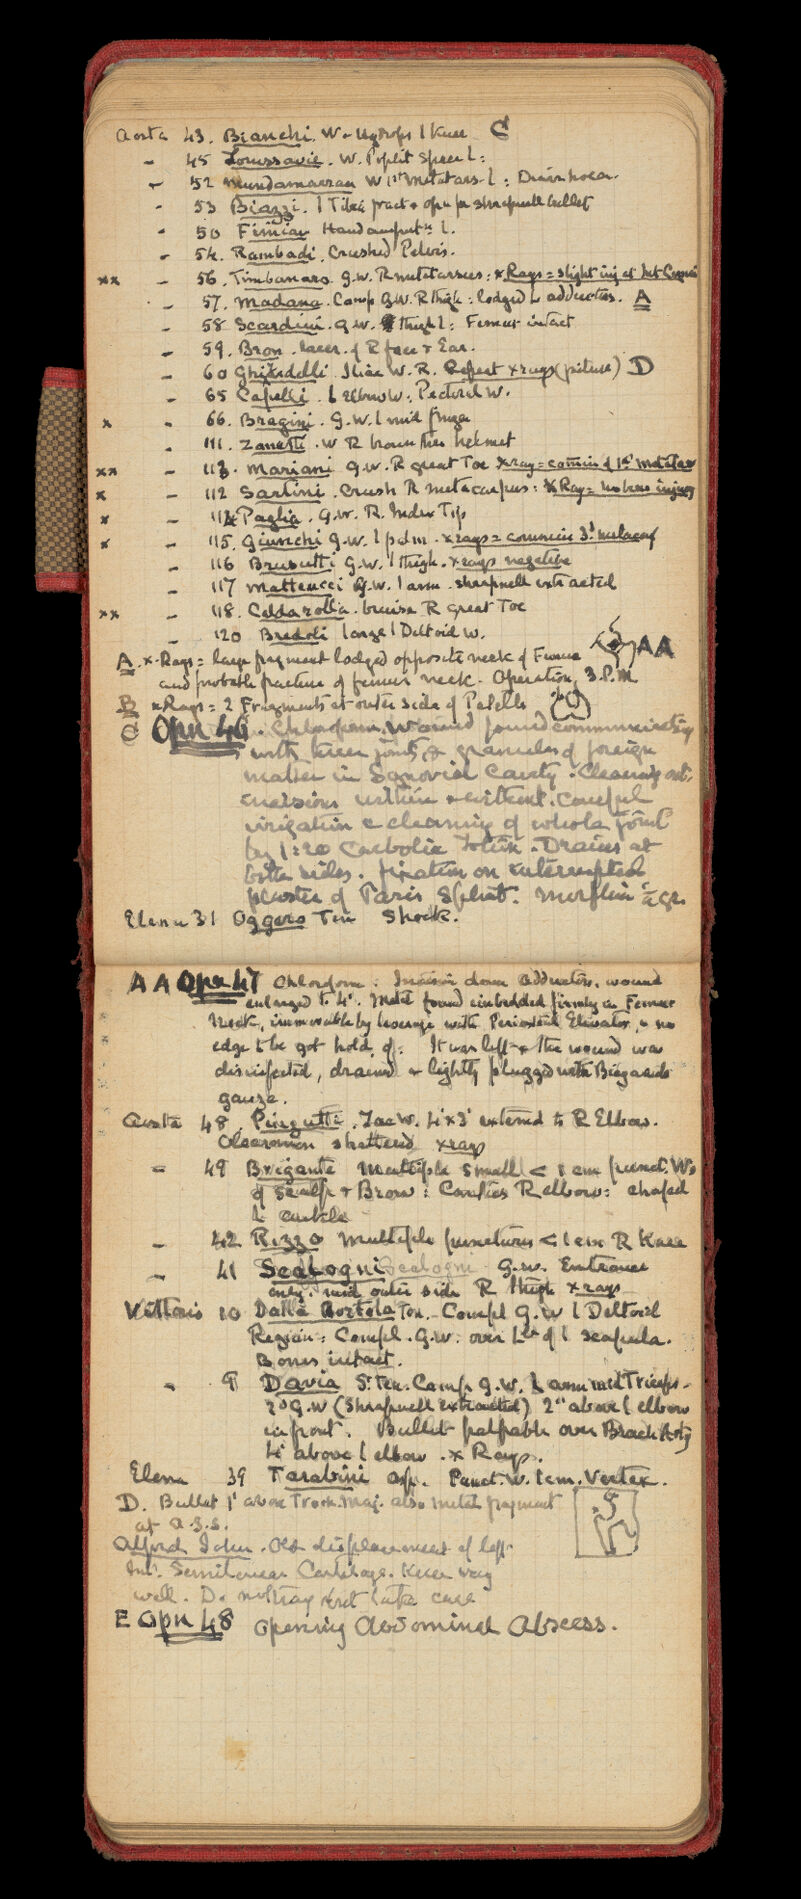 Aosta 43. Bianchi. W. l Knee C
- 45 W. Poplit Space L:
- 52 W 1st Metatars. L:
- 53 Biazzi. l Tibia fract + open for shrapnell bullet
- 50 Finian Hand amput. L.
- 54. Rambadi. Crushed Pelvis.
xx - 56. Timbanaro. G.W. R metatarsus: x Rays = slight inj at Int Cunei
- 57. Madana. Comp G.W. R thigh: lodged in adductors. A
- 58 Scardini. G.W. thigh L: Femur intact
- 59. Bron. lacer. of R face + Ear.
- 60 Ghirardelli. Iliac W. R. Repeat x rays (picture) D
- 65 Capelli. L elbow W: Pectoral W.
x - 66. Bragini. G.W. l mid finger
- 111. Zanetti. W R brow thro helmet
xx - 113. Mariani G.W. R great Toe x ray = commin of 1st metatar
x - 112 Sartini. Crush R metacarpus: x Ray = no bone injury
x - 114 Paglia. G.W. R. Index Tip
x - 115. Giunchi G.W. l palm. x rays = commin 3d metacarp
- 116 Brusutti G.W. l thigh. x rays negative
- 117 Matteucci G.W. l arm. shrapnell extracted
xx - 118. Caldarolla. bruise R great Toe
- 120 Bredoli large l Deltoid W.
A. x-Rays = large fragment lodged opposite neck of Femur AA
and probable fracture of femur neck. Operation 3.P.M
B x Rays = 2 Fragments at outer side of Patella
C Opn 46. Chloroform. Wound found communicating
with knee joint & granules of foreign
matter in Synovial Cavity. Cleaning out.
incisions within + without. Careful
irrigation & cleaning of whole joint
by 1:20 Carbolic Solution. Drains at
both sides. fixation on interrupted
plaster of Paris Splint. Morphin
Elena 31 Oggero Ten Shock.
AA Opn 47 Chloroform: Incision down adductors. wound
enlarged to 4". Metal found imbedded firmly in Femur
Neck, immovable by leverage with Periosteal Elevator, & no
edge to be got hold of: It was left + the wound was
disinfected, drained + lightly plugged with
gauze.
Aosta 48. Pinzutti. Lac W. 4"x3" external to R Elbow.
Olecranon shattered x ray
- 49 Brigante Multiple small < 1 cm punct. Ws
of scalp + Brow: R elbow: chafed
L ankle
- 42 Rizzo Multiple punctures < 1 cm R Knee
- 41 Scalogni Scalogni G.W. Entrance
only. mid outer side R thigh x rays
Vittorio 10 Dalla Bortola Ten. Compl G.W l Deltoid
Region: Compl. G.W. over of l scapula.
Bones intact.
- 9 Davia S. Ten. Comp G.W. L arm mid Triceps.
2d G.W (Shrapnell extracted) 2" above l elbow
in front. Bullet palpable over Brach Arty
4" above l elbow. x Rays.
Elena 39 Tarabini Asp. Punct. W. 1 cm. Vertex.
D. Bullet 1" above Troch. Maj. also metal fragment
at A.S.S.
Alford John. Old displacement of left
Int. Semilunar Cartilage. Knee way
well. Do not
E Opn 48 Opening Abdominal Abscess.